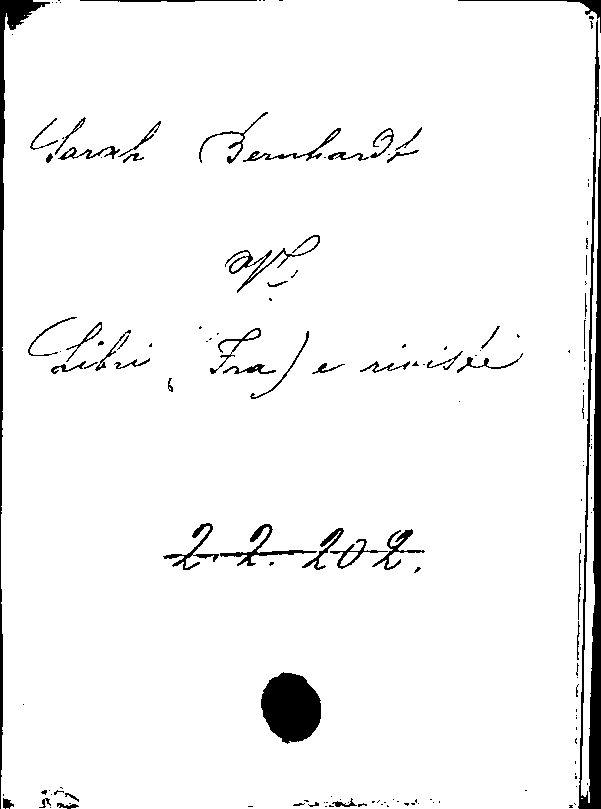 Sarah Bernhardt
Libri, Fra) e riviste
2. 2. 202.